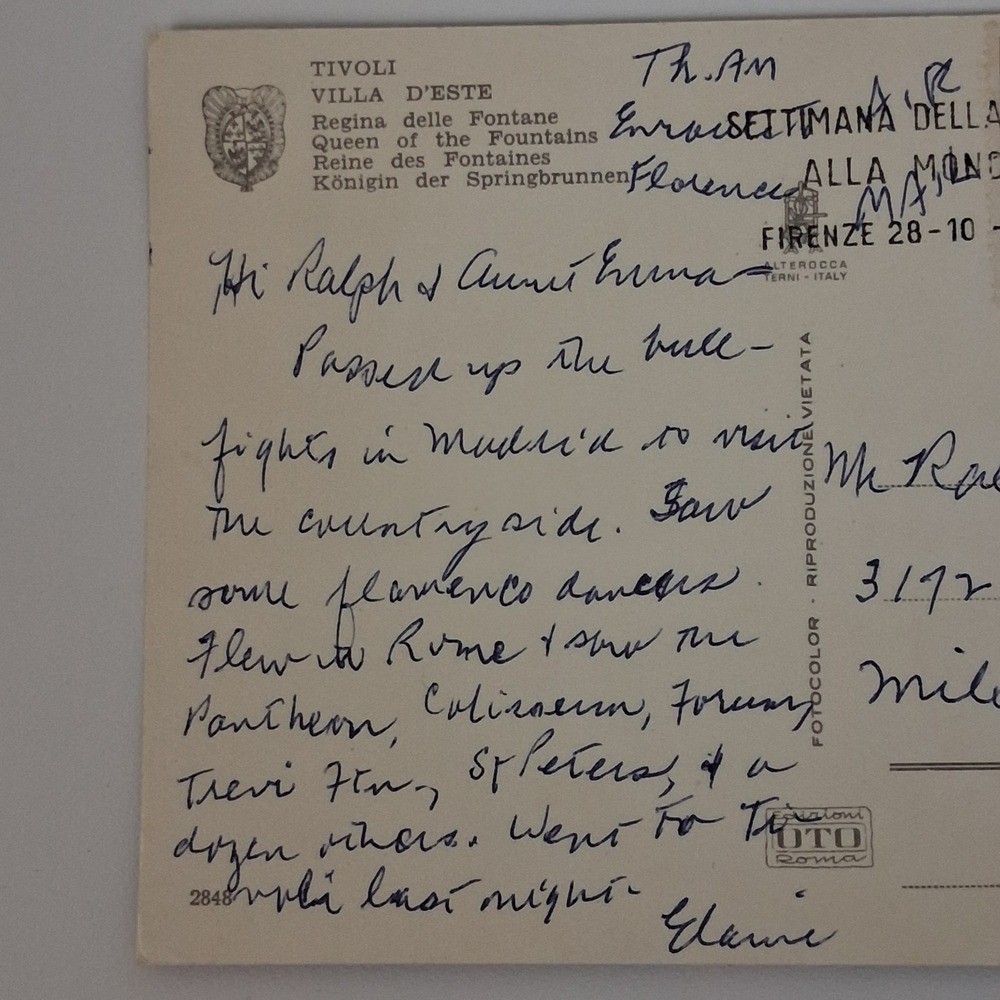 TIVOLI
VILLA D'ESTE
Regina delle Fontane
Queen of the Fountains
Reine des Fontaines
Königin der Springbrunnen
Th. AM
Enroute
Florence
AIR
MAIL
SETTIMANA DELLA
ALLA
FIRENZE 28-10 -
ALTEROCCA
TERNI - ITALY
Hi Ralph & Aunt Emma —
Passed up the bull-
fights in Madrid to visit
the countryside. Saw
some flamenco dancers.
Flew to Rome & saw the
Pantheon, Coliseum, Forum,
Trevi Ftn., St Peters, & a
dozen others. Went to Ti-
voli last night.
Elaine
2848
FOTOCOLOR · RIPRODUZIONE VIETATA
Mr
3172
edizioni
OTO
Roma